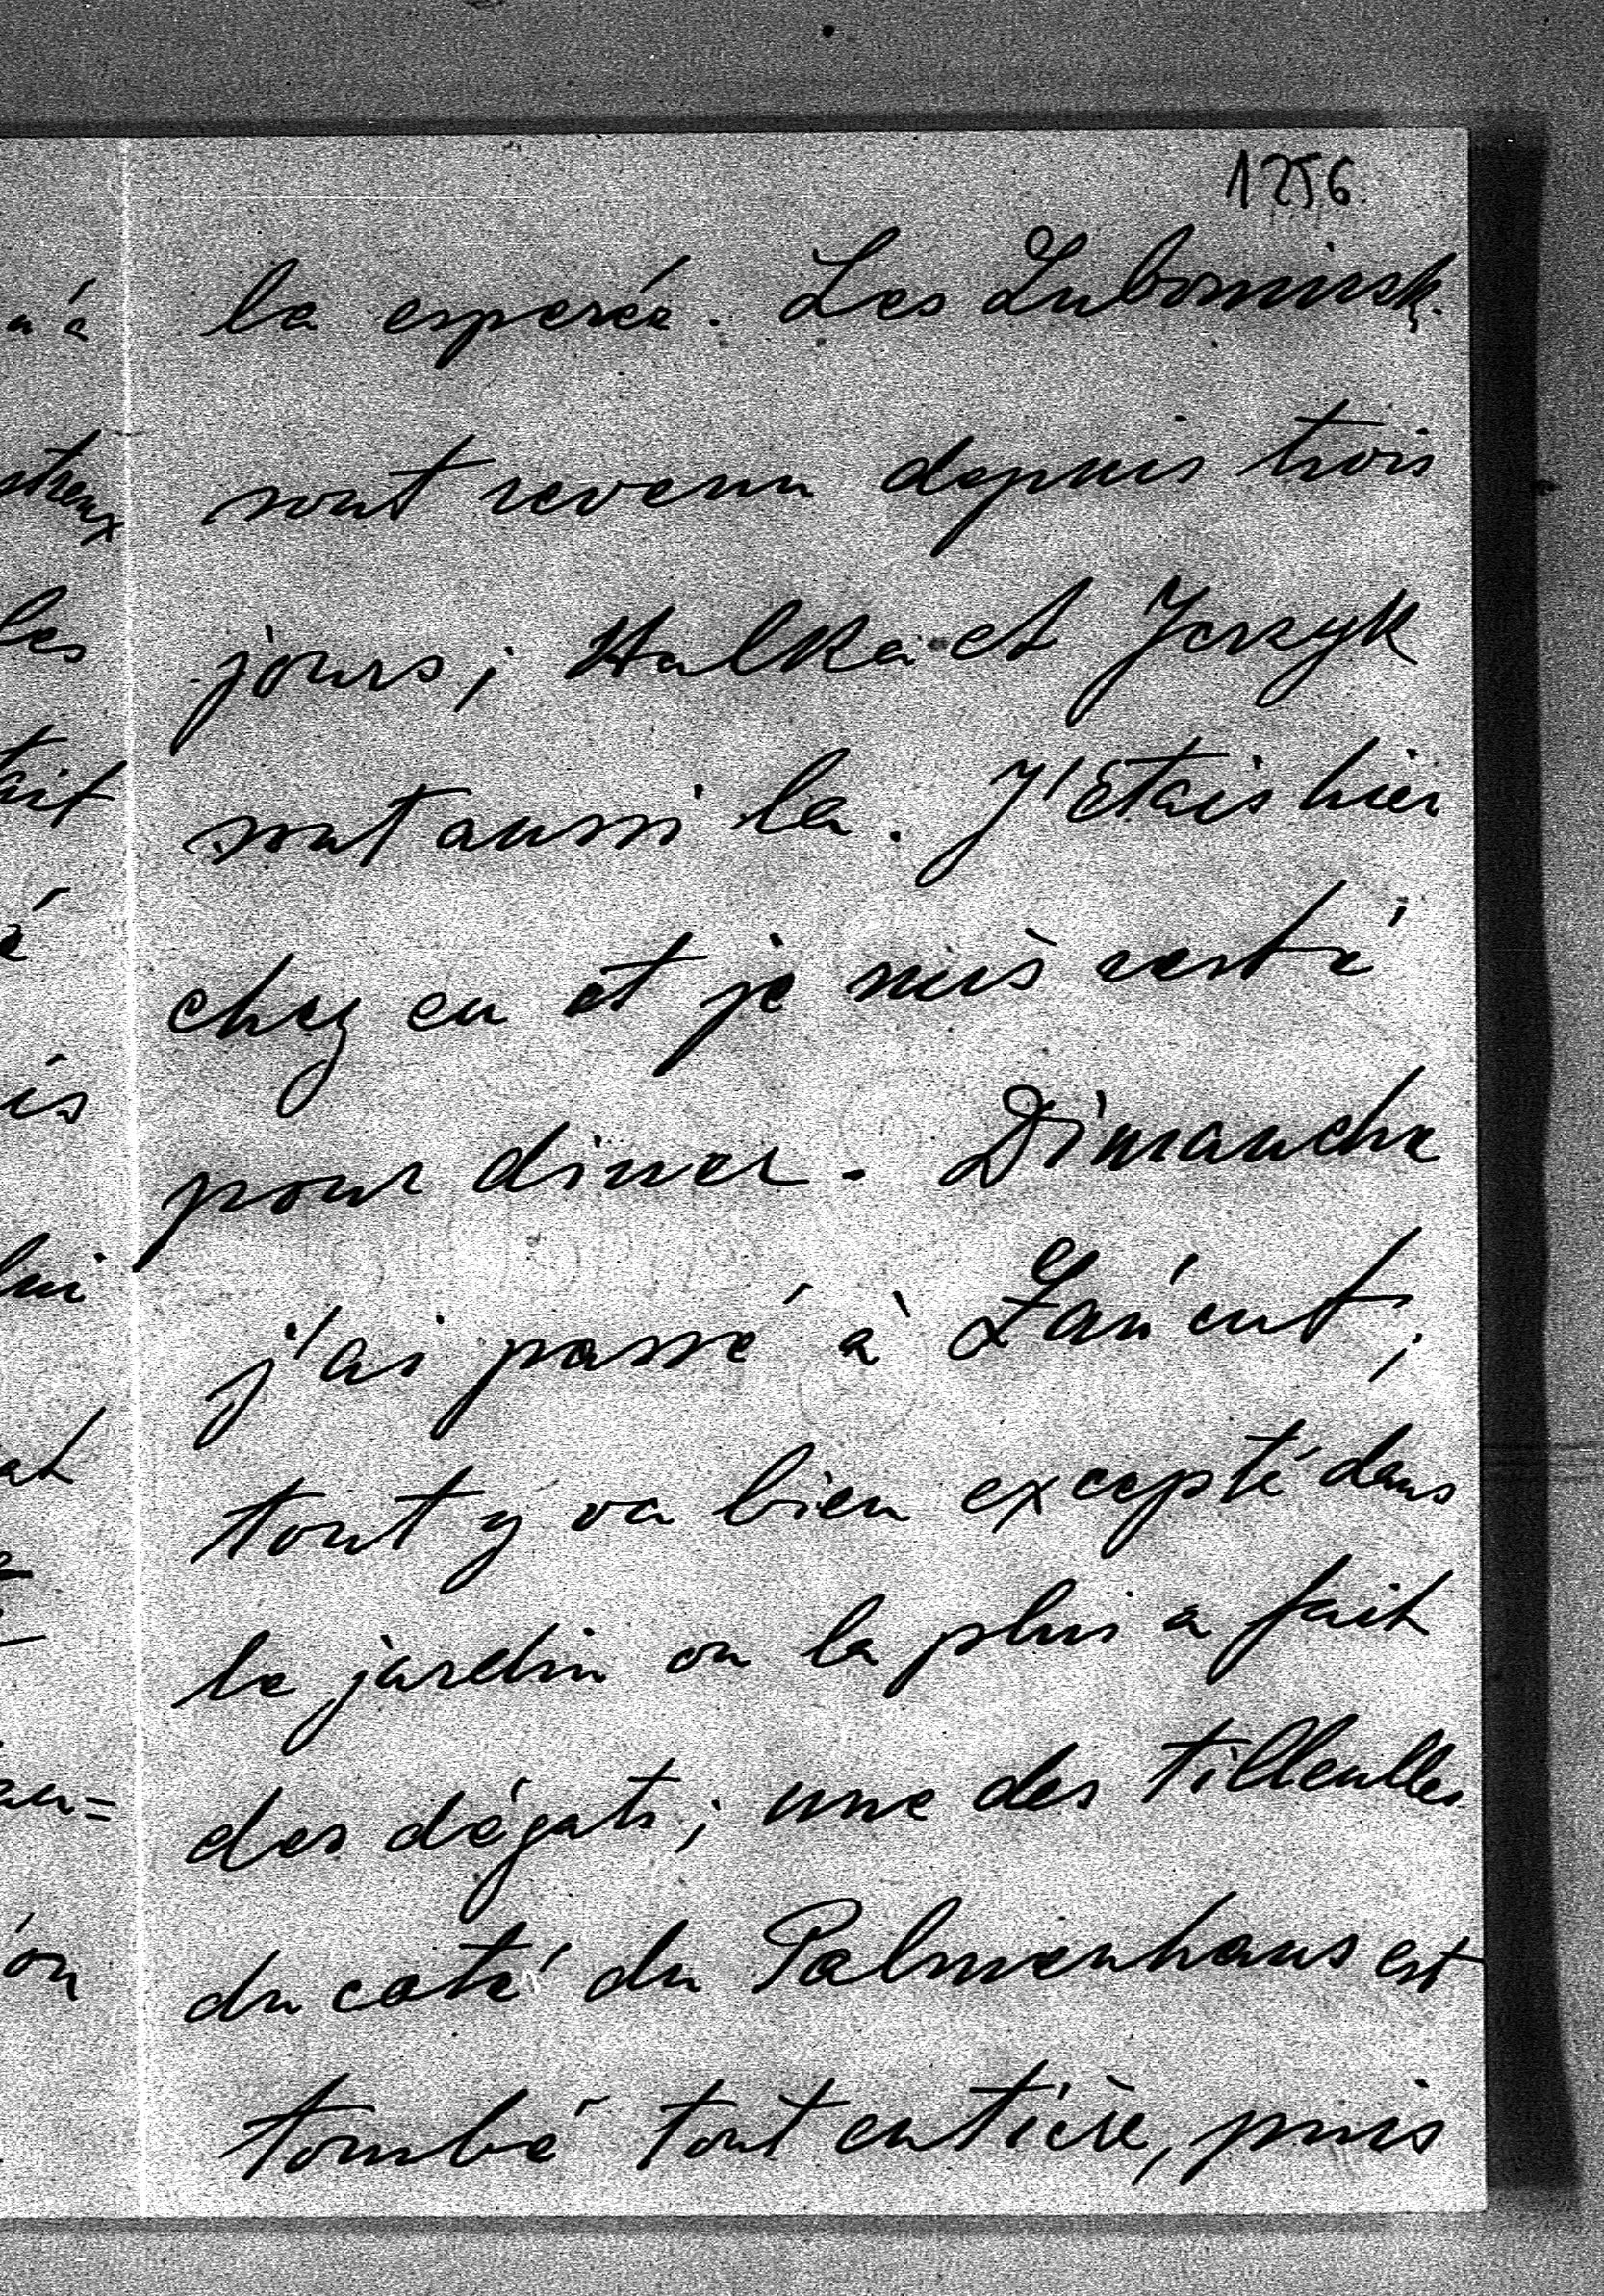 1256
la esperée. Les Lubomirski
sont revenu depuis trois
jours; Halka et Jerzyk
sont aussi la. J'étais hier
chez eu et je suis resté
pour diner. Dimanche
j'ai passé à Łańcut;
tout y va bien excepté dans
le jardin ou la pluis a fait
des dégats; une des tilleulles
du coté du Palmenhaus est
tombé tout entière, puis